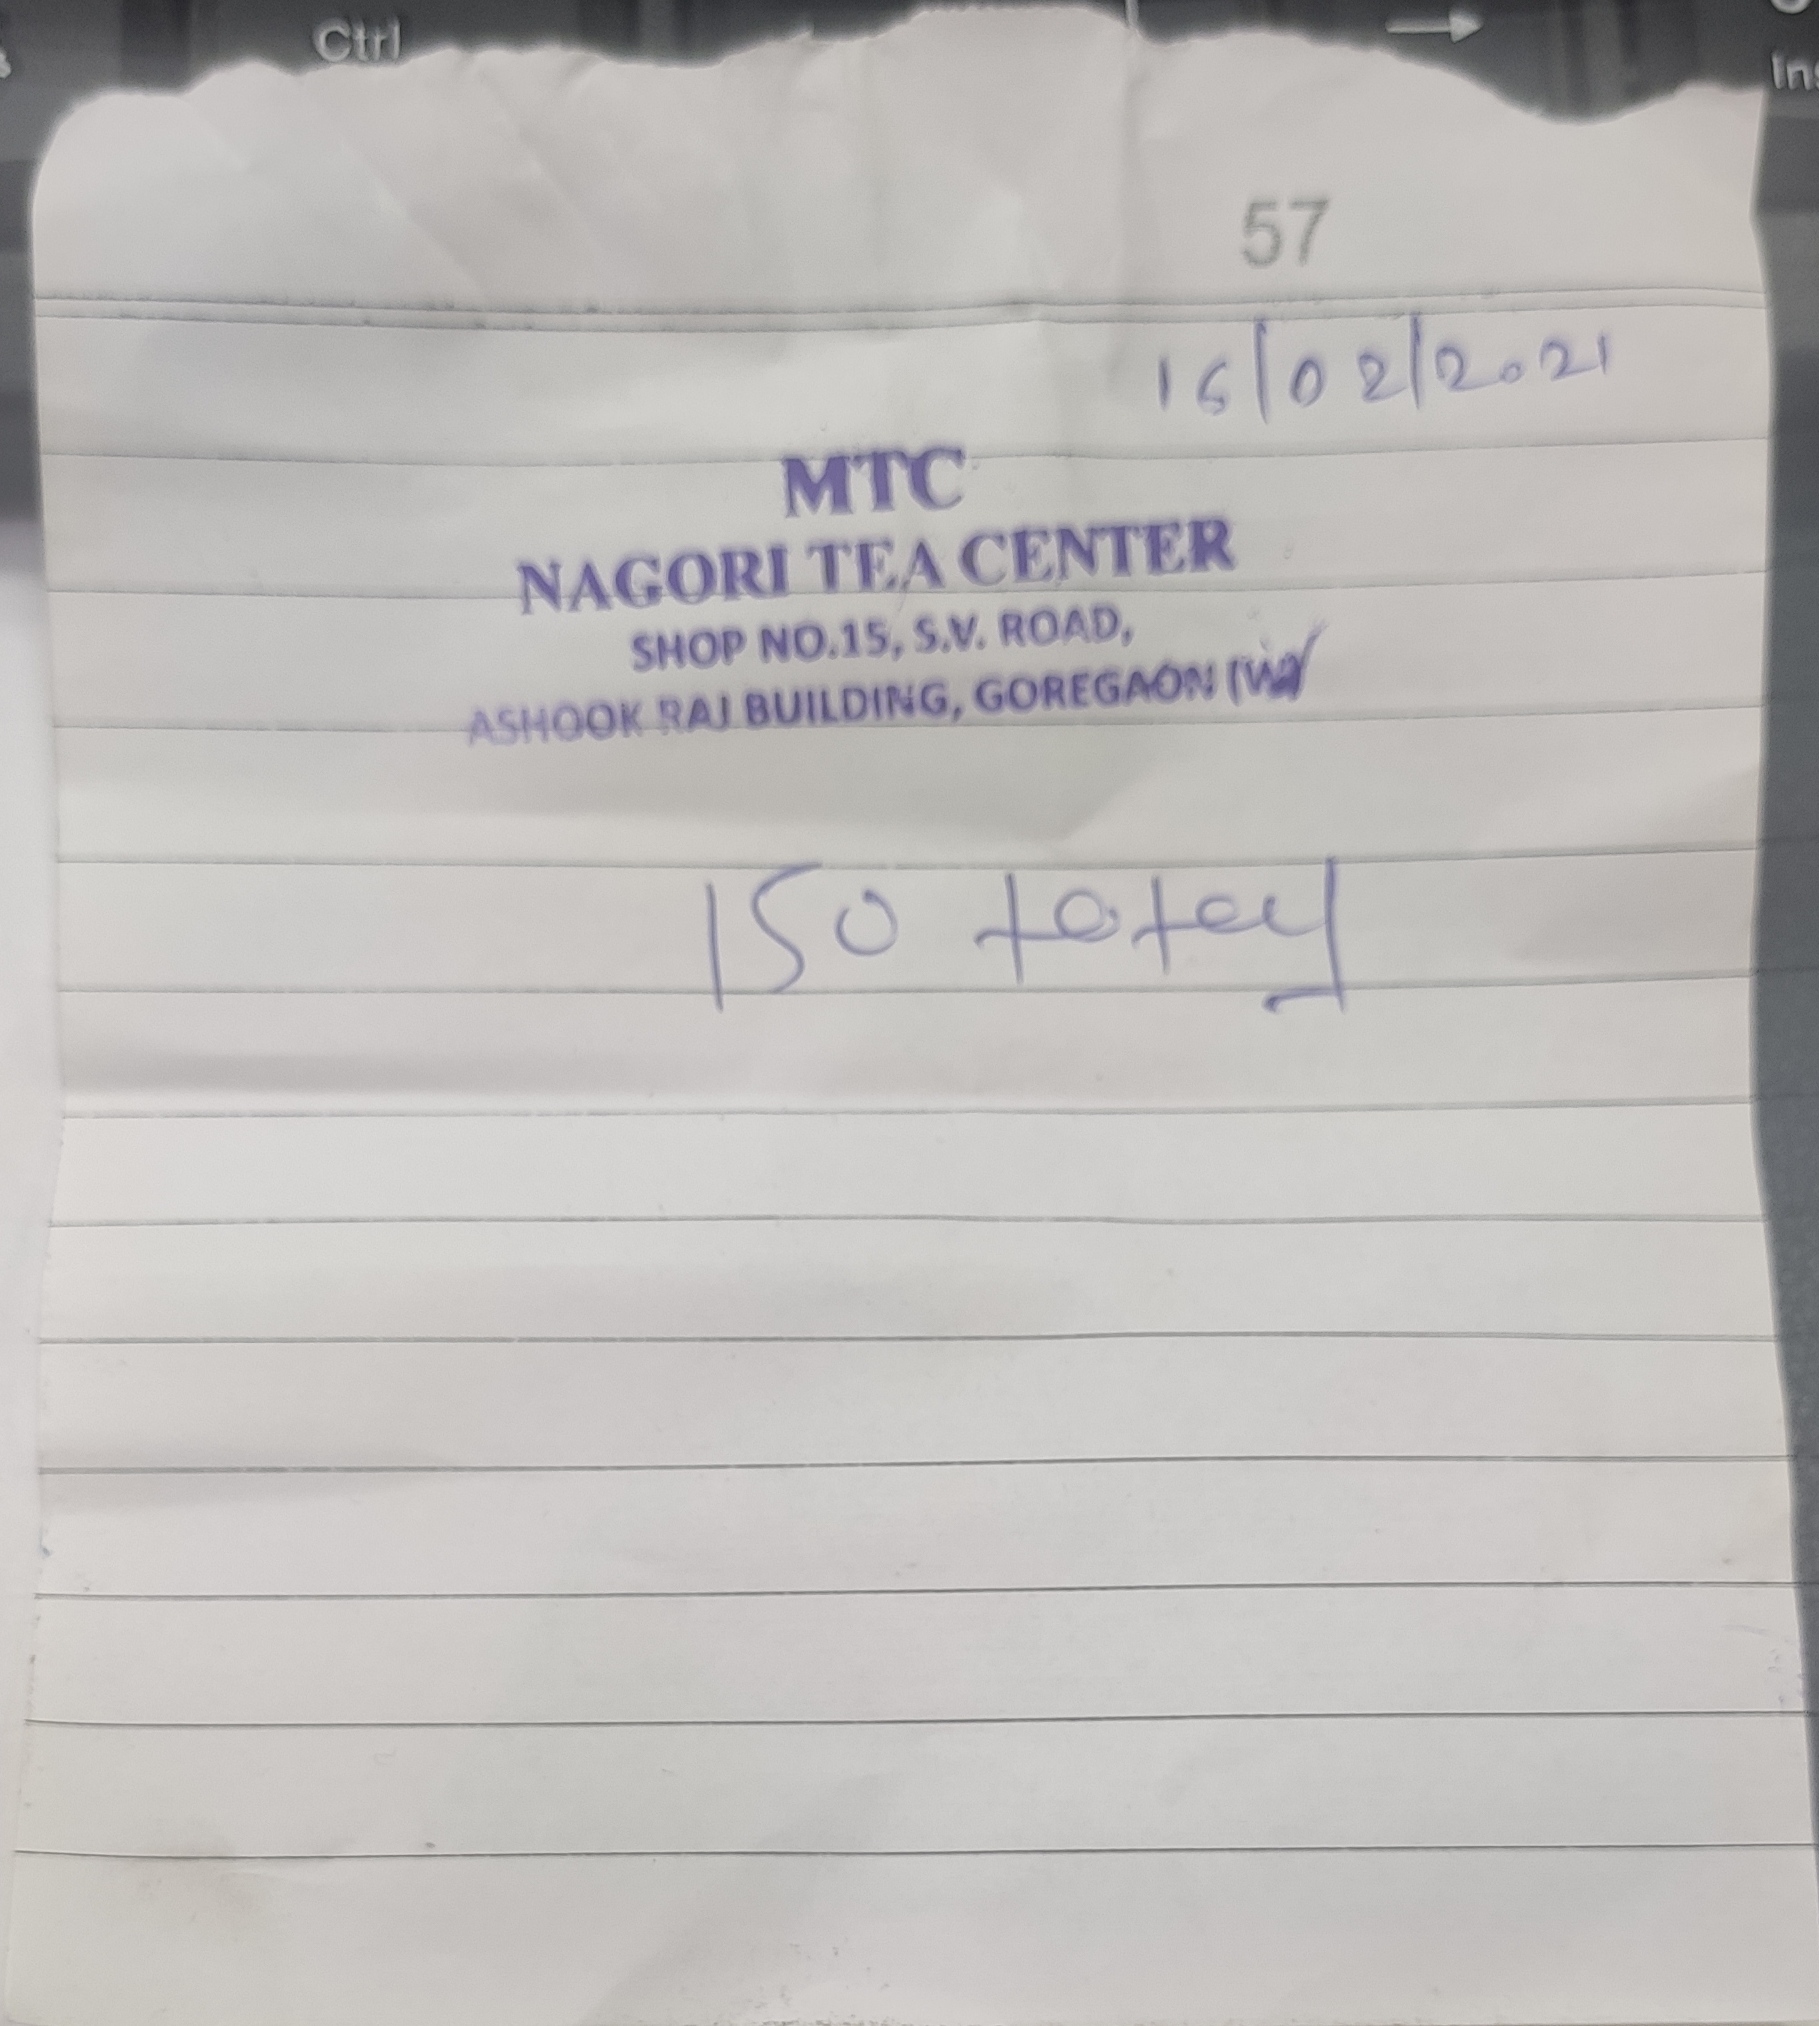 Ctrl
→
Ins
57
16/02/2021
MTC
NAGORI TEA CENTER
SHOP NO.15, S.V. ROAD,
ASHOOK RAJ BUILDING, GOREGAON (W)
150 total